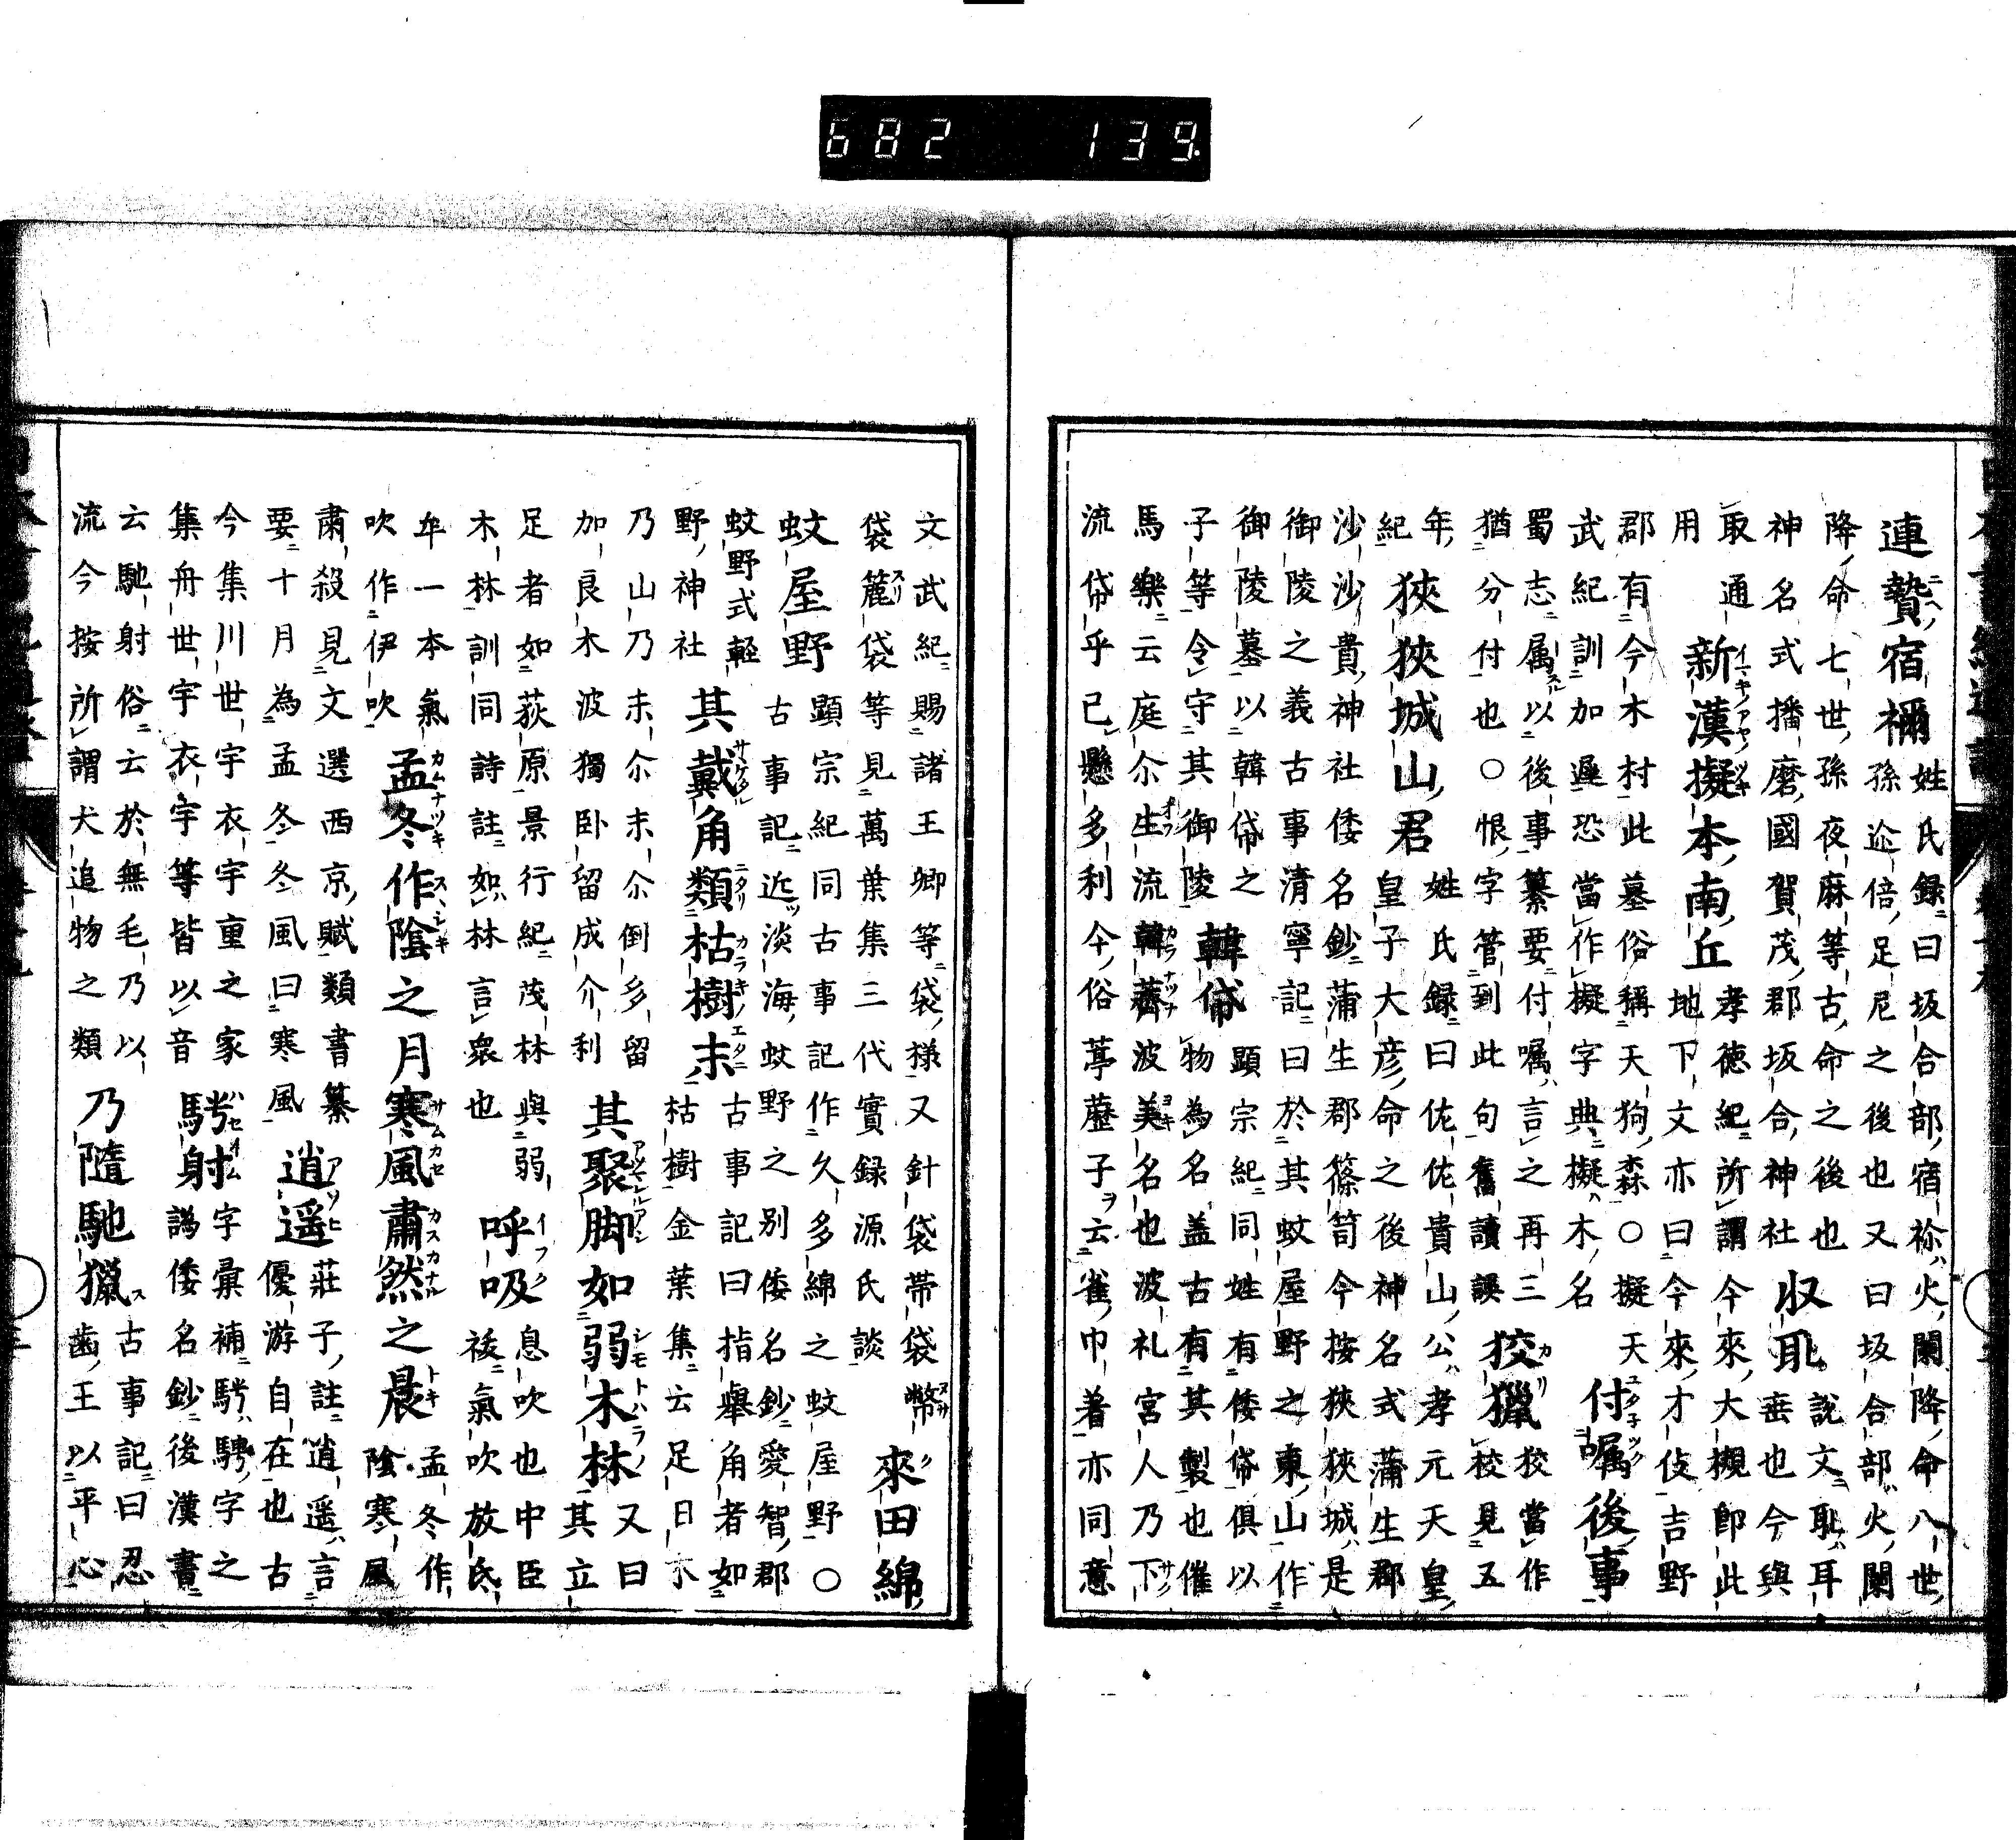 連贄宿禰
姓氏録曰坂合部宿祢火闌降命八世
孫迩倍足尼之後也又曰坂合部火闌
降命七世孫夜麻等古命之後也
神名式播磨國賀茂郡坂合神社
収耴
說文耴耳
垂也今與
取通
用
新漢擬本南丘
孝徳紀所謂今來大槻即此
地下文亦曰今來才伎吉野
郡有今木村此墓俗稱天狗森○擬天
武紀訓加遲恐當作擬字典擬木名
付嘱後事
蜀志属以後事纂要付嘱言之再三
猶分付也○恨字管到此句舊讀誤
狡獵
狡當作
校見五
年
紀
狹狹城山君
姓氏録曰佐佐貴山公孝元天皇
皇子大彦命之後神名式蒲生郡
沙沙貴神社倭名鈔蒲生郡篠笥今按狹狹城是
御陵之義古事清寧記曰於其蚊屋野之東山作
御陵墓以韓帒之
子等令守其御陵
韓帒
顯宗紀同姓有倭帒俱以
物為名盖古有其製也催
馬樂云庭尒生流韓薺波美名也波礼宮人乃下
流帒乎己懸多利今俗葶藶子云雀巾着亦同意
文武紀賜諸王卿等袋樣又針袋帶袋幣
袋簏袋等見萬葉集三代實録源氏談
來田綿
蚊屋野
顯宗紀同古事記作久多綿之蚊屋野○
古事記近淡海蚊野之別倭名鈔愛智郡
蚊野式輕
野神社
其戴角類枯樹末
古事記曰指舉角者如
枯樹金葉集云足日木
乃山乃末尒末尒倒多留
加良木波獨卧留成介利
其聚脚如弱木林
又曰
其立
足者如荻原景行紀茂林與弱
木林訓同詩註如林言衆也
呼吸
息吹也中臣
祓氣吹放氐
牟一本氣
吹作伊吹
孟冬作陰之月寒風肅然之晨
孟冬作
陰寒風
肅殺見文選西京賦類書纂
要十月為孟冬冬風曰寒風
逍遥
莊子註逍遥言
優游自在也古
今集川世宇衣宇重之家
集舟世宇衣宇等皆以音
騁射
字彙補騁騁字之
譌倭名鈔後漢書
云馳射俗云於無毛乃以
流今按所謂犬追物之類
乃隨馳獵
古事記曰忍
齒王以平心
682 139